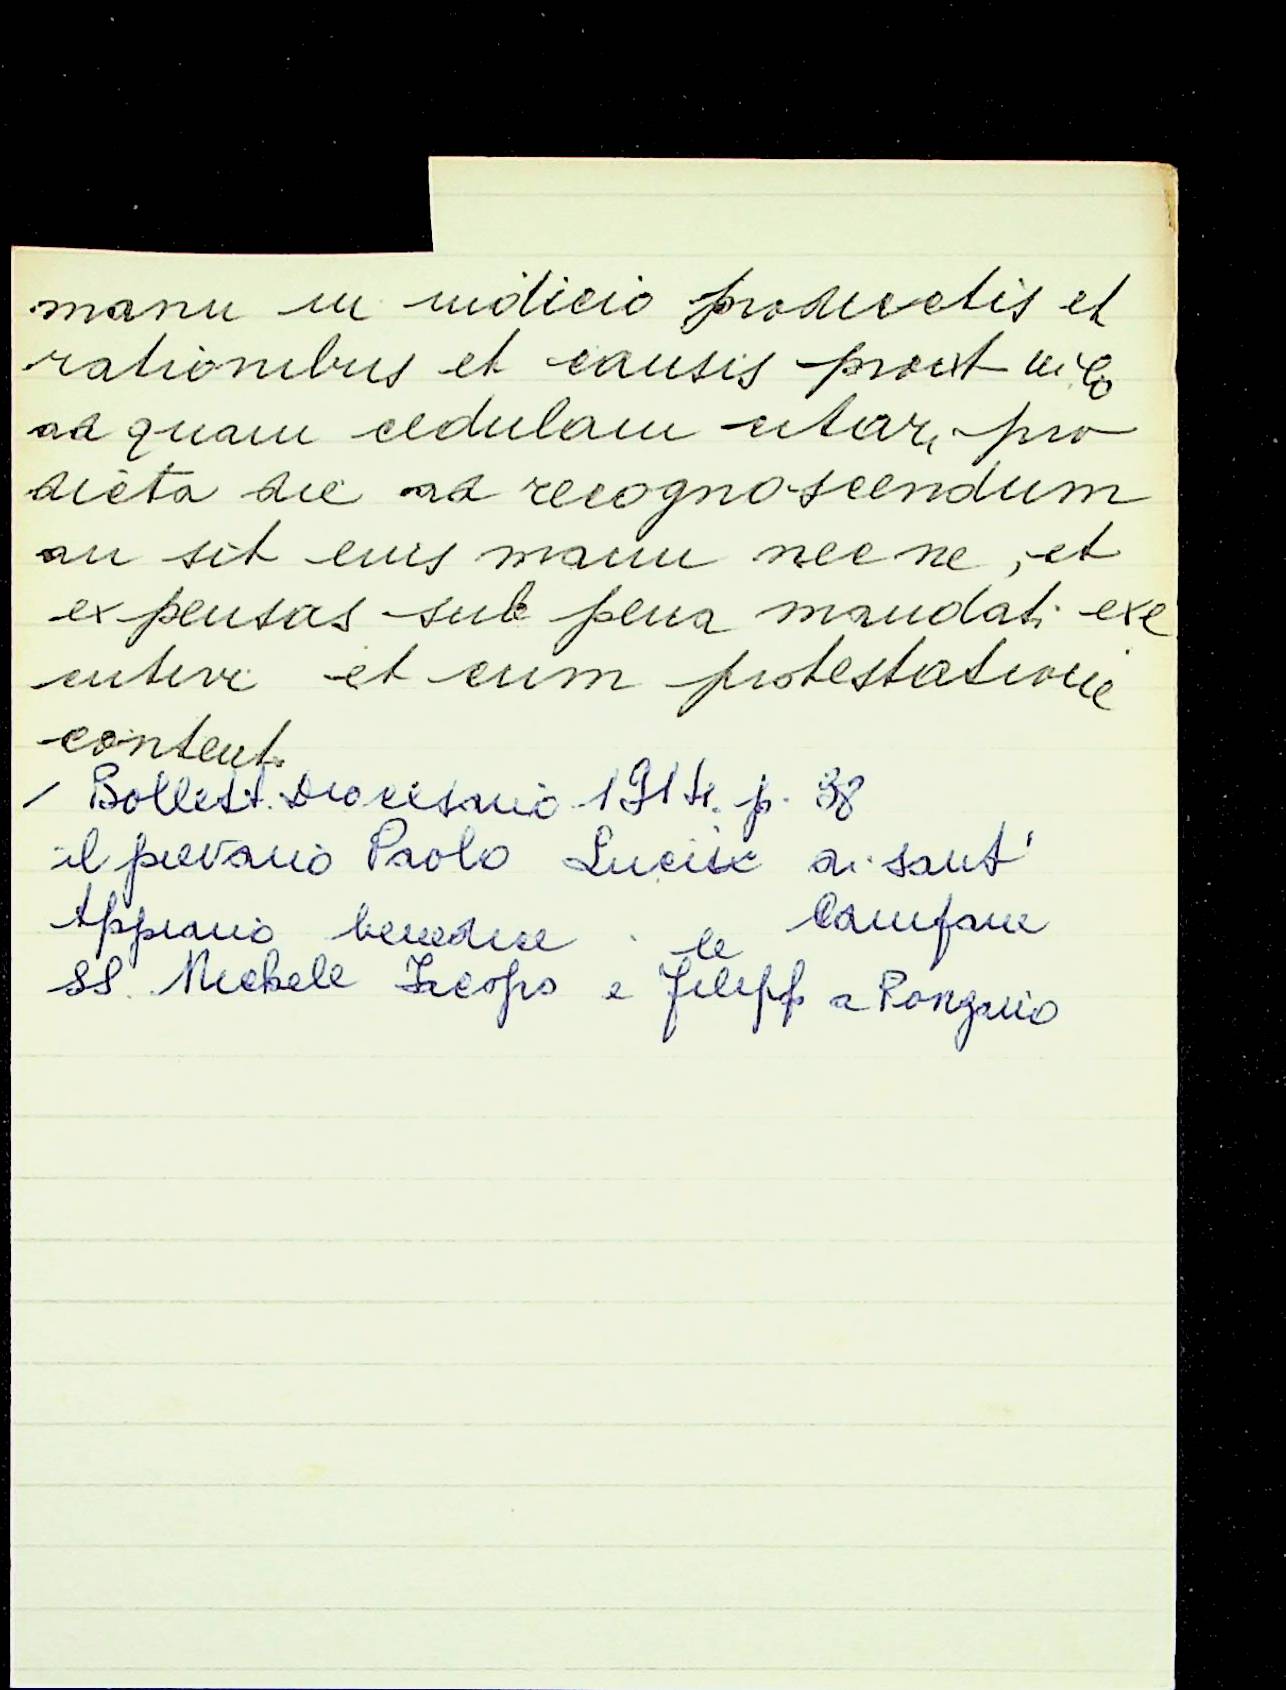 manu in iudicio productis et
rationibus et causis prout in ea
ad quam cedulam citar, pro
dicta die ad recognoscendum
an sit eius manu nec ne, et
expensas sub pena mandati exe
cutivi et cum protestatione
content.
/ Bollett. Diocesano 1914. p. 38
il pievano Paolo di sant'
Appiano benedice le Campane
SS. Michele Iacopo e Filipp a Ponzano